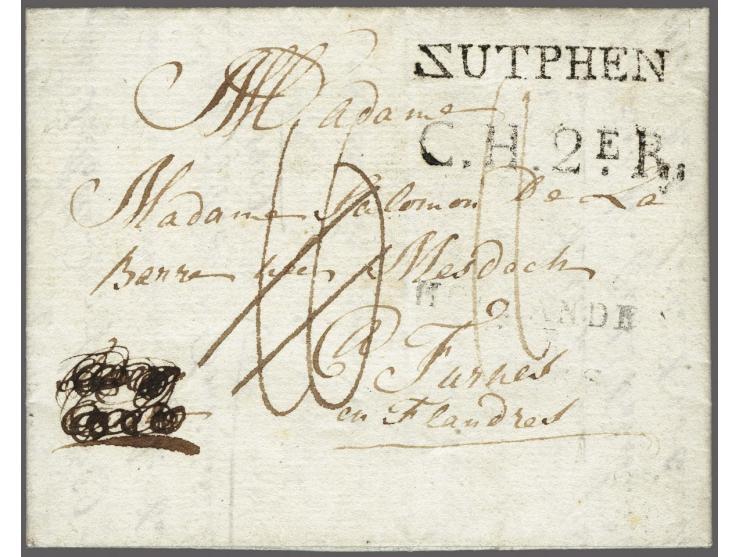 ZUTPHEN
C.H. 2E. Rys
Madame
Madame Salomon De La
Barre née Mesdach
HOLLANDE
a Furnes
en Flandres